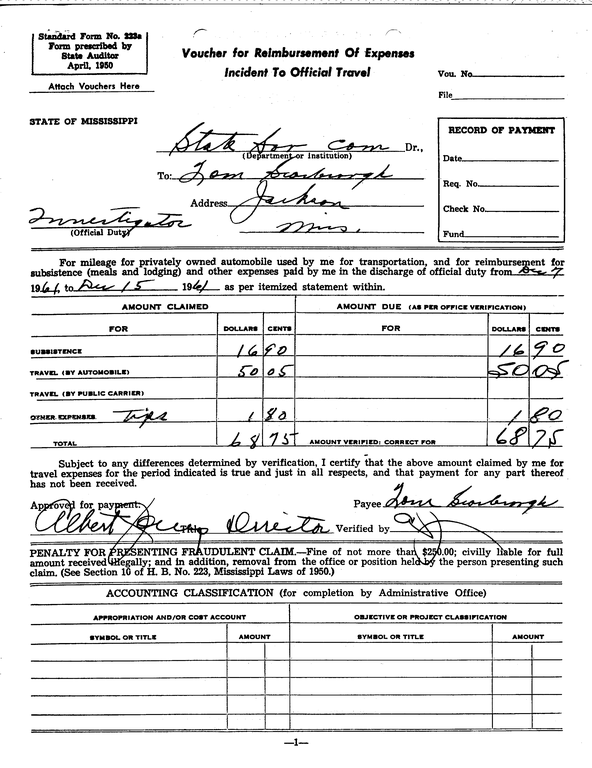 Standard Form No. 223a
Form prescribed by
State Auditor
April, 1950
Attach Vouchers Here
Voucher for Reimbursement Of Expenses
Incident To Official Travel
Vou. No.
File
STATE OF MISSISSIPPI
State Sov Com Dr.,
(Department or Institution)
To: Tom Scarbrough
Address Jackson
Miss.
Investigator
(Official Duty)
RECORD OF PAYMENT
Date
Req. No.
Check No.
Fund
For mileage for privately owned automobile used by me for transportation, and for reimbursement for
subsistence (meals and lodging) and other expenses paid by me in the discharge of official duty from Dec 7
1961, to Dec 15 1961 as per itemized statement within.
AMOUNT CLAIMED AMOUNT DUE (AS PER OFFICE VERIFICATION)
FOR DOLLARS CENTS FOR DOLLARS CENTS
SUBSISTENCE 16 90 16 90
TRAVEL (BY AUTOMOBILE) 50 05 50 05
TRAVEL (BY PUBLIC CARRIER)
OTHER EXPENSES tips 1 80 1 80
TOTAL 68 75 AMOUNT VERIFIED: CORRECT FOR 68 75
Subject to any differences determined by verification, I certify that the above amount claimed by me for
travel expenses for the period indicated is true and just in all respects, and that payment for any part thereof
has not been received.
Approved for payment: Payee Tom Scarbrough
Albert Director Verified by
PENALTY FOR PRESENTING FRAUDULENT CLAIM.—Fine of not more than $250.00; civilly liable for full
amount received illegally; and in addition, removal from the office or position held by the person presenting such
claim. (See Section 10 of H. B. No. 223, Mississippi Laws of 1950.)
ACCOUNTING CLASSIFICATION (for completion by Administrative Office)
APPROPRIATION AND/OR COST ACCOUNT OBJECTIVE OR PROJECT CLASSIFICATION
SYMBOL OR TITLE AMOUNT SYMBOL OR TITLE AMOUNT
—1—